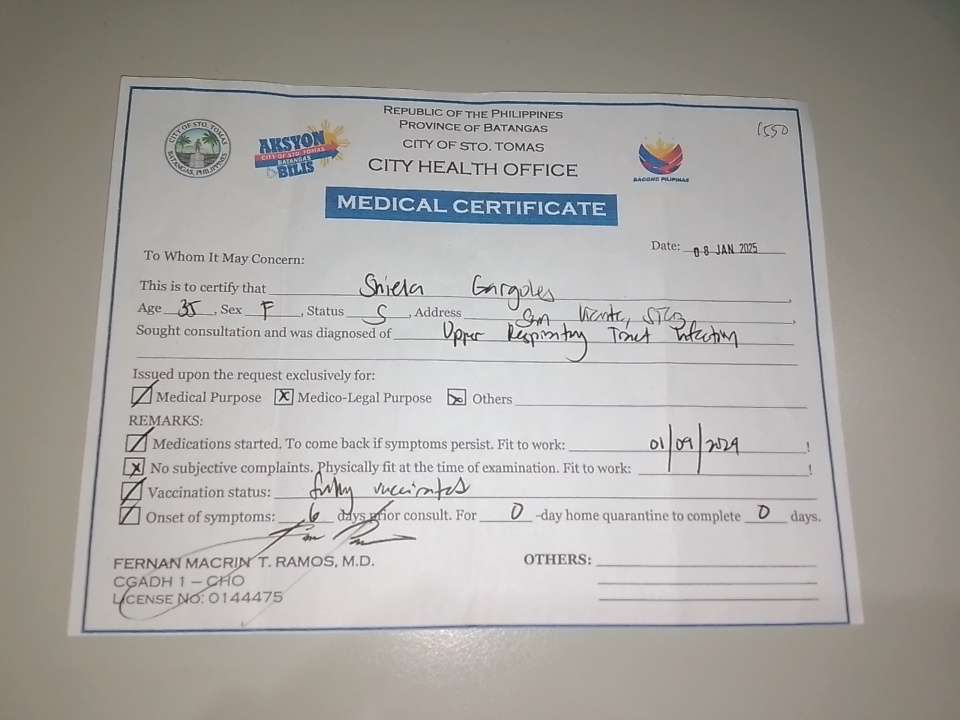 1550
REPUBLIC OF THE PHILIPPINES
PROVINCE OF BATANGAS
CITY OF STO. TOMAS
CITY HEALTH OFFICE
CITY OF STO. TOMAS
BATANGAS, PHILIPPINES
AKSYON
CITY OF STO. TOMAS
BATANGAS
BILIS
BAGONG PILIPINAS
MEDICAL CERTIFICATE
Date: 08 JAN 2025
To Whom It May Concern:
This is to certify that Shiela Gargoles,
Age 35, Sex F, Status S, Address San Vicente, STCB,
Sought consultation and was diagnosed of Upper Respiratory Tract Infection
Issued upon the request exclusively for:
Medical Purpose Medico-Legal Purpose Others
REMARKS:
Medications started. To come back if symptoms persist. Fit to work: 01/09/2029!
No subjective complaints. Physically fit at the time of examination. Fit to work: !
Vaccination status: fully vaccinated
Onset of symptoms: 6 days prior consult. For 0 -day home quarantine to complete 0 days.
FERNAN MACRIN T. RAMOS, M.D.
CGADH 1 – CHO
LICENSE NO: 0144475
OTHERS: